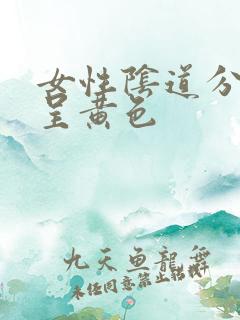 女性陰道分
呈黄色
九天鱼龍舞
未经同意禁止转载